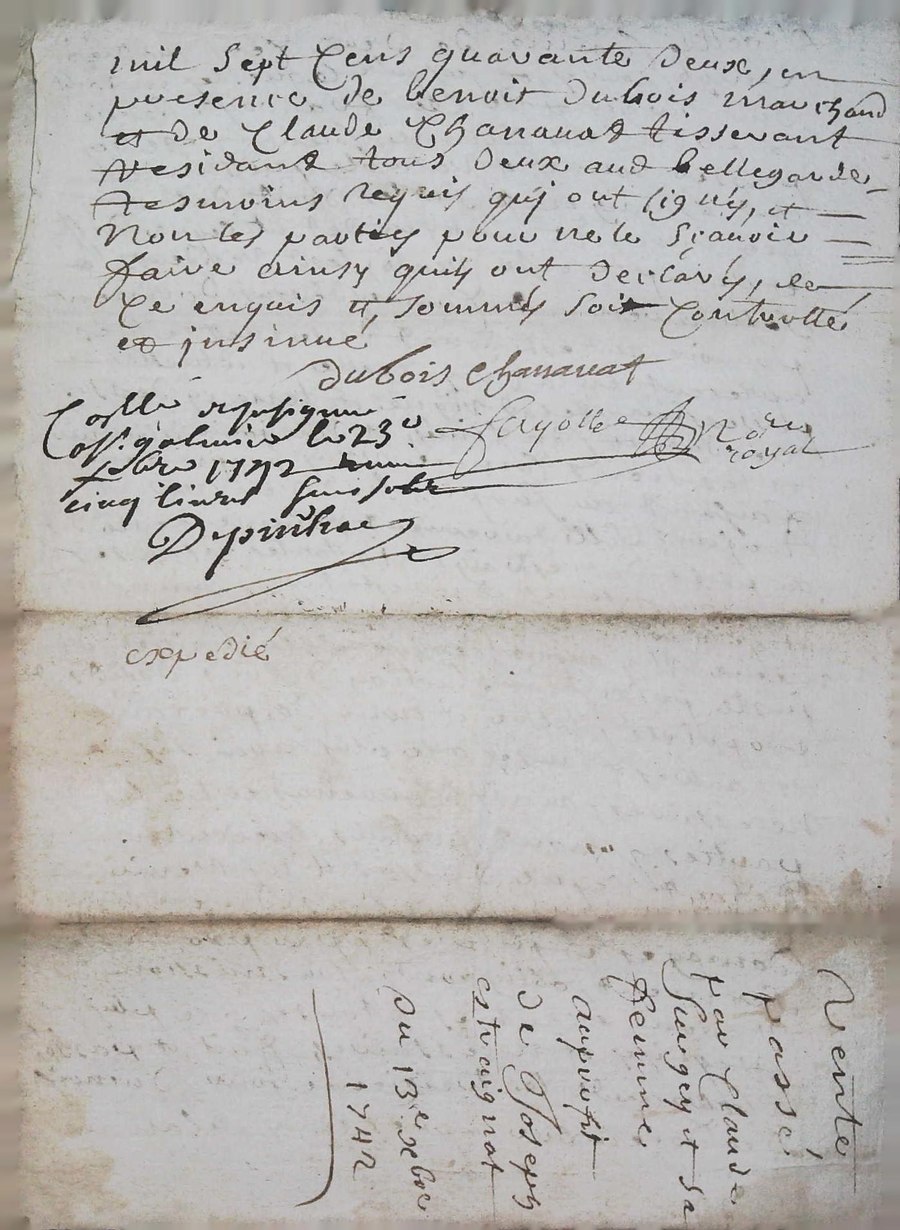 mil sept cens quarante deux, en
presence de benoit dubois marchand
et de Claude Chanavat tisserant
residant tous deux aud bellegarde
tesmoins requis quj ont signés, et
Non les parties pour ne le sçauoir
faire ainsy quils ont declarés, de
Ce enquis et sommés soit Controllé
et jnsinué
dubois Chanavat
Collé
a st galmier le 23e
1742
cinq livres
fayolle Nore
royal
expedié
Vente
passé
par Claude
et sa
femme
auprofit
de Joseph
estraignat
Du 13e xbre
1742